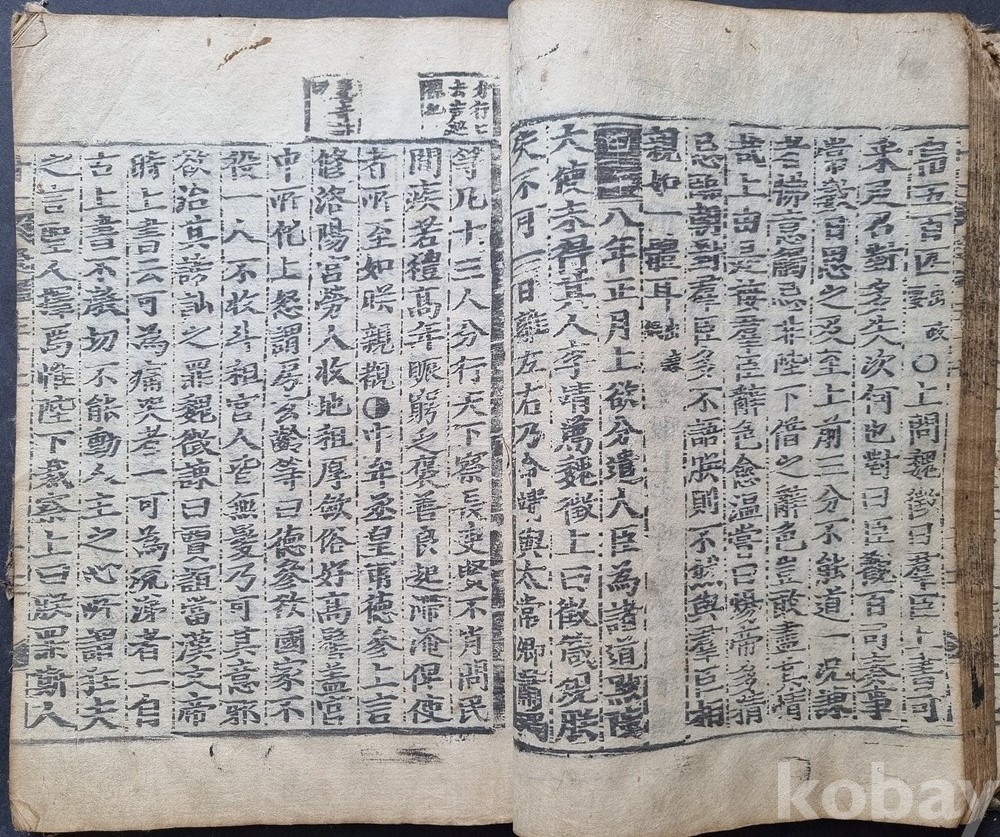 五百匹 出政要 ○上問魏徵曰羣臣上書可
采及召對多失次何也對曰臣觀百司奏事
常數日思之及至上前三分不能道一况諫
者拂意觸忌非陛下借之辭色豈敢盡其情
哉上由是接羣臣辭色愈溫嘗曰煬帝多猜
忌臨朝對羣臣多不語朕則不然與羣臣相
親如一體耳
八年正月上欲分遣大臣為諸道黜陟
大使未得其人李靖薦魏徵上曰徵箴規朕
失不可一日離左右乃命靖與太常卿蕭瑀
等凡十三人分行天下察長吏賢不肖問民
間疾苦禮高年賑窮乏褒善良起滯淹俾使
者所至如朕親覩●中牟丞皇甫德參上言
修洛陽宮勞人收地租厚斂俗好高髻蓋宮
中所化上怒謂房玄齡等曰德參欲國家不
役一人不收斗租宮人皆無髮乃可其意邪
欲治其謗訕之罪魏徵諫曰賈誼當漢文帝
時上書云可為痛哭者一可為流涕者二自
古上書不激切不能動人主之心所謂狂夫
之言聖人擇焉惟陛下裁察上曰朕罪斯人
kobay